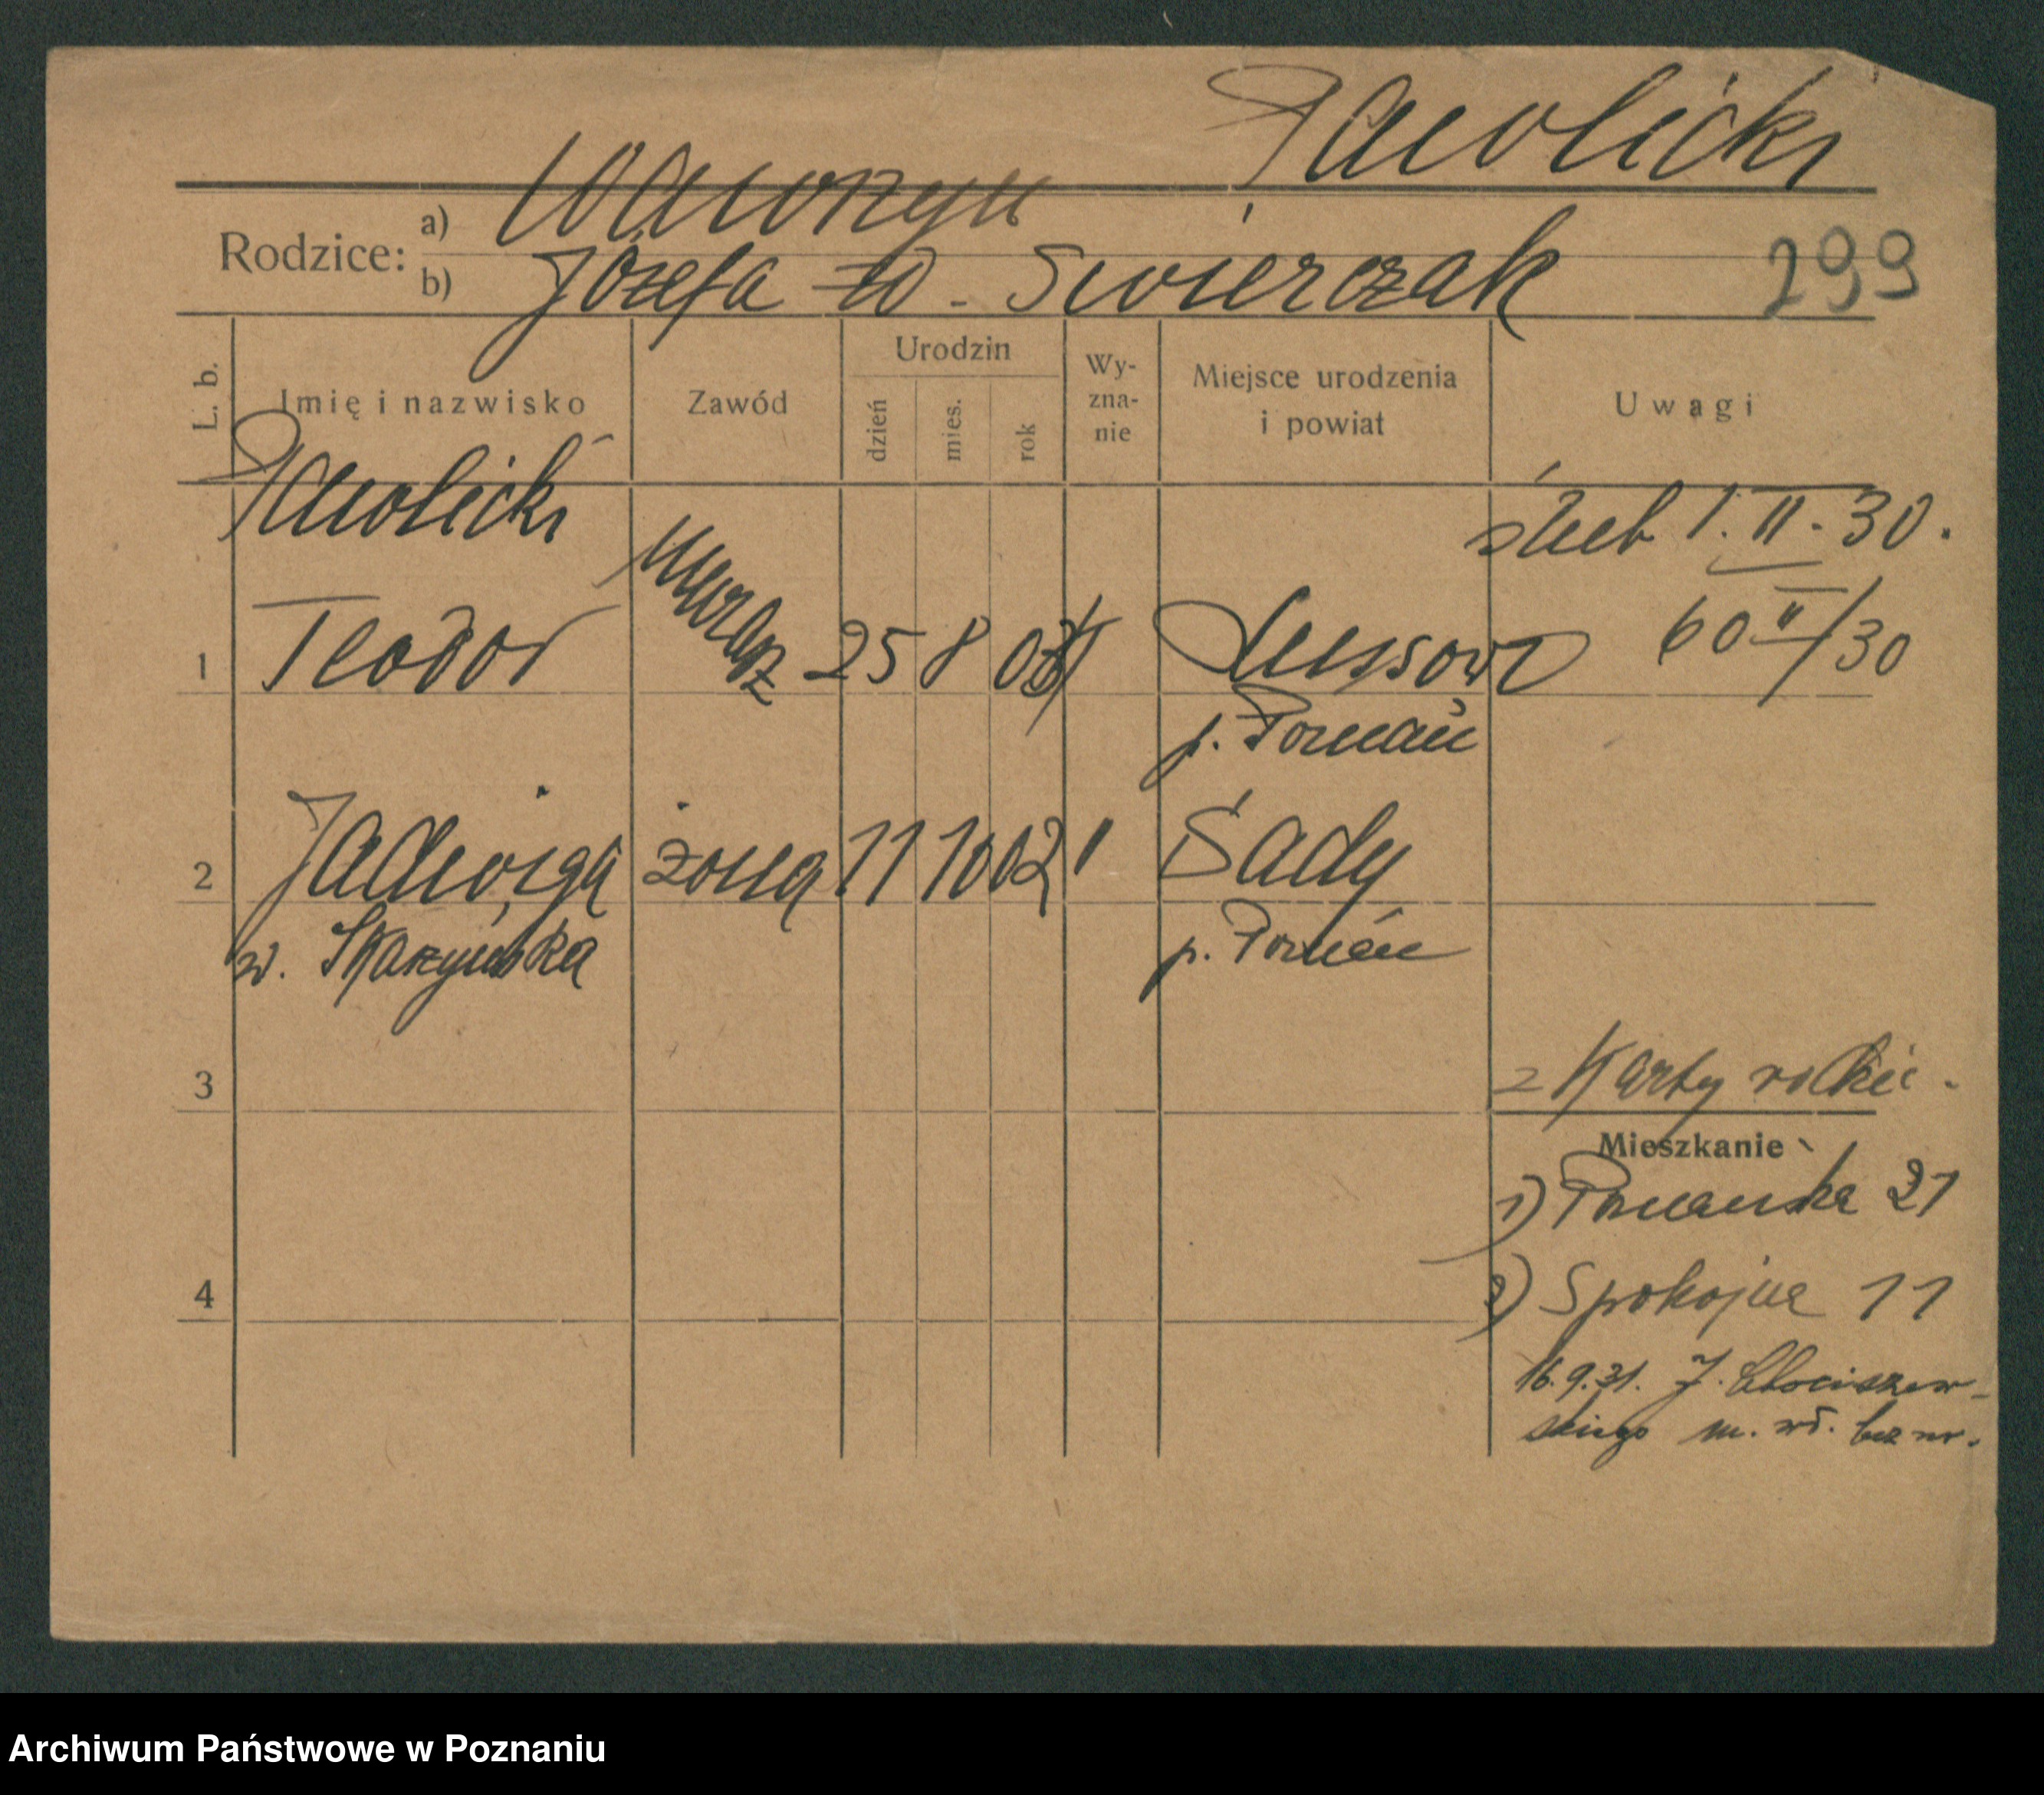 Pawlicki
Rodzice: a) Wawrzyn
b) Józefa zd. Świerczak
299
L. b.
Imię i nazwisko
Zawód
Urodzin
dzień
mies.
rok
Wy-
zna-
nie
Miejsce urodzenia
i powiat
Uwagi
Pawlicki
ślub 1. II. 30.
1 Teodor murarz 25 8 03 Lussowo 60 II/30
p. Poznań
2 Jadwiga żona 11 10 02 " Sady
p. Poznań
3
2 Karty
Mieszkanie
1) Poznańska 21
4
2) Spokojna 11
16.9.31. J. Chociszew-
skiego bez nr.
Archiwum Państwowe w Poznaniu